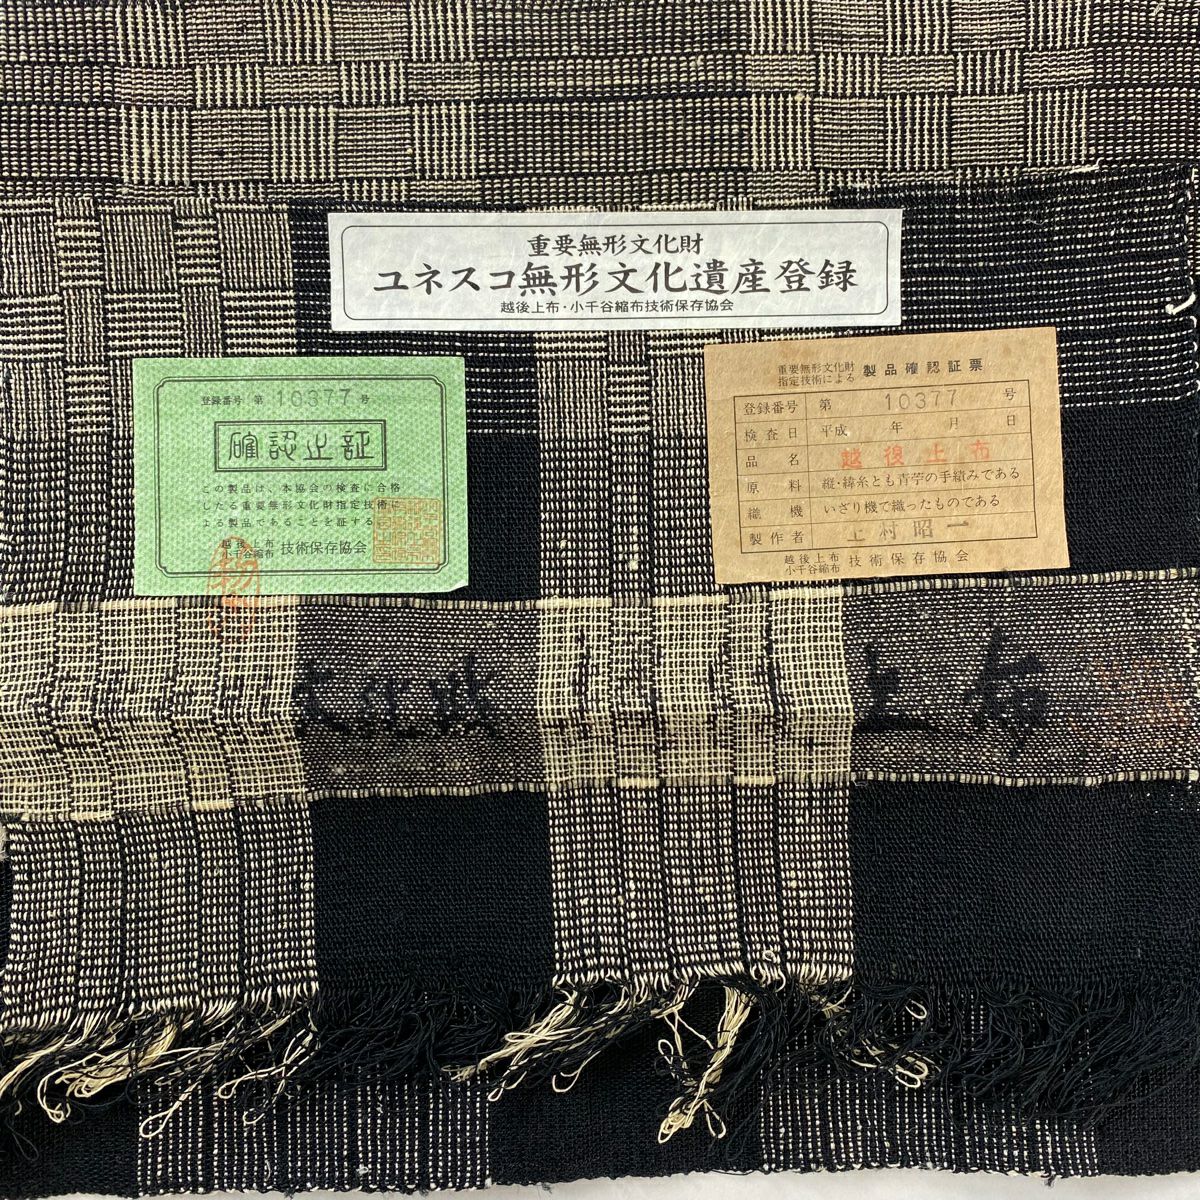 重要無形文化財
ユネスコ無形文化遺産登録
越後上布・小千谷縮布技術保存協会
登録番号 第 10377 号
確認之証
この製品は、本協会の検査に合格
したる重要無形文化財指定技術に
よる製品であることを証する
越後上布
小千谷縮布 技術保存協会
重要無形文化財
指定技術による 製品確認証票
登録番号 第 10377 号
検査日 平成 年 月 日
品名 越後上布
原料 縦・緯糸とも青苧の手績みである
織機 いざり機で織ったものである
製作者 上村昭一
越後上布
小千谷縮布 技術保存協会
上布